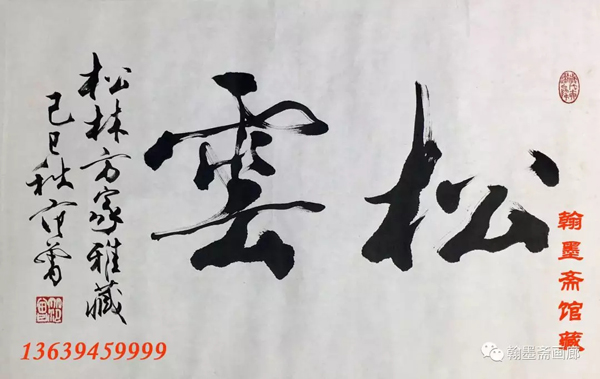 松雲
松林方家雅藏
己巳秋 范曾
翰墨斋馆藏
13639459999
翰墨斋画廊